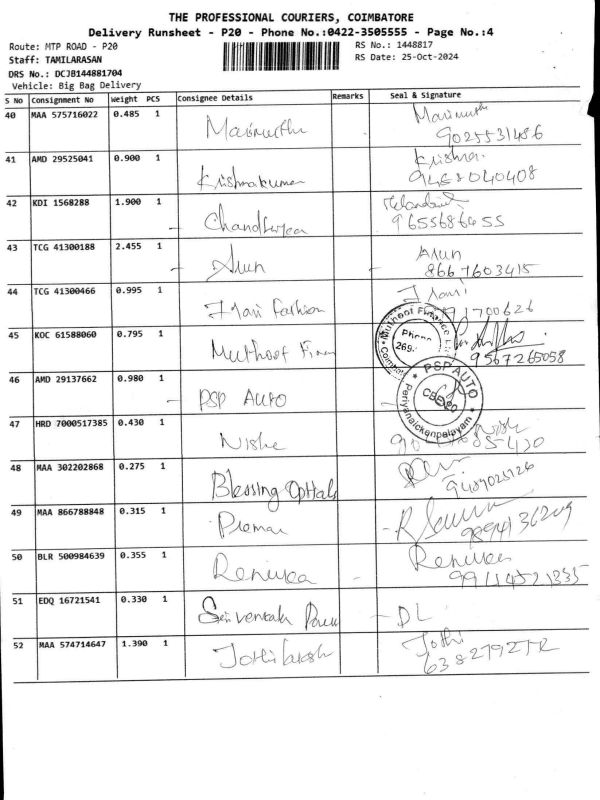 THE PROFESSIONAL COURIERS, COIMBATORE
Delivery Runsheet - P20 - Phone No.:0422-3505555 - Page No.:4
Route: MTP ROAD - P20
RS No.: 1448817
Staff: TAMILARASAN
RS Date: 25-Oct-2024
DRS No.: DCJB144881704
Vehicle: Big Bag Delivery
S No Consignment No Weight PCS Consignee Details Remarks Seal & Signature
40 MAA 575716022 0.485 1 Marimuthu Marimuthu
9025531486
41 AMD 29525041 0.900 1 Krishnakumar Krishna
42 KDI 1568288 1.900 1
9655686455
43 TCG 41300188 2.455 1 Arun Arun
8667603415
44 TCG 41300466 0.995 1 Fashion
45 KOC 61588060 0.795 1 Muthoot Finan
Muthoot Finance
9567265058
46 AMD 29137662 0.980 1 PSP Auto
PSP AUTO
Periyanaickenpalayam
47 HRD 7000517385 0.430 1
48 MAA 302202868 0.275 1 Blessing Opticals
49 MAA 866788848 0.315 1
50 BLR 500984639 0.355 1 Renuka Renuka
51 EDQ 16721541 0.330 1 DL
52 MAA 574714647 1.390 1 Jothi